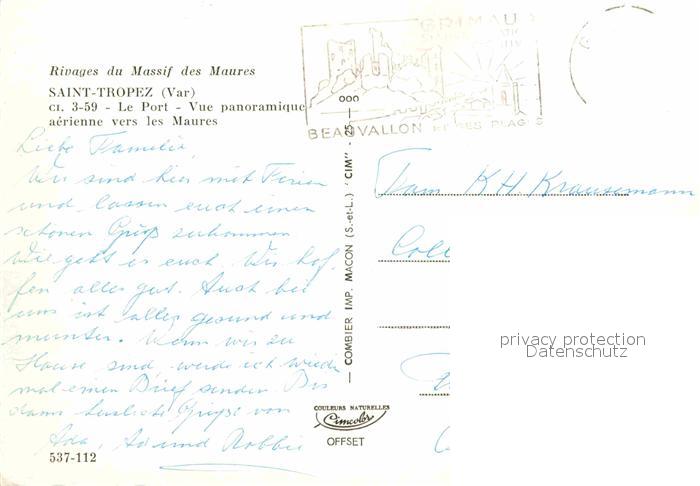 Rivages du Massif des Maures
SAINT-TROPEZ (Var)
CI. 3-59 - Le Port - Vue panoramique
aérienne vers les Maures
GRIMAUD
BEAUVALLON ET SES PLAGES
Liebe Familie,
Wir sind hier mit Ferien
und lassen euch einen
schönen Gruß zukommen
Wie geht es euch. Wir hof-
fen alles gut. Auch bei
uns ist alles gesund und
munter. Wenn wir zu
Hause sind, werde ich wieder
mal einen Brief senden. Bis
dann herzliche Grüße von
Ada, Ad und Robbie
537-112
COMBIER IMP. MACON (S.-et-L.) "CIM" - 25
COULEURS NATURELLES
Cimcolor
OFFSET
Fam K.H. Krausemann
privacy protection
Datenschutz